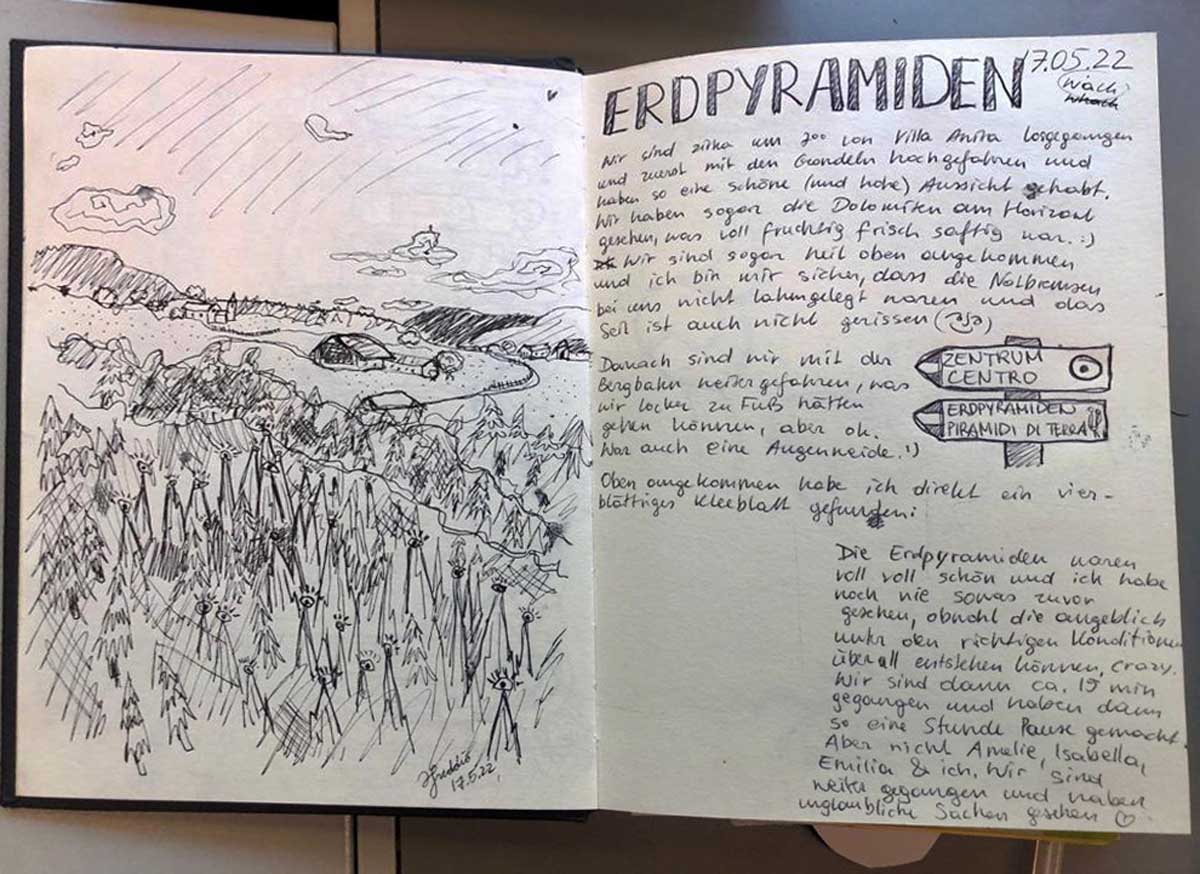 ERDPYRAMIDEN
17.05.22
wach
Wir sind zirka um 7⁰⁰ von Villa Anita losgegangen
und zuerst mit den Gondeln hochgefahren und
haben so eine schöne (und hohe) Aussicht gehabt.
Wir haben sogar die Dolomiten am Horizont
gesehen, was voll fruchtig frisch saftig war. :)
Wir sind sogar heil oben angekommen
und ich bin mir sicher, dass die Notbremsen
bei uns nicht lahmgelegt waren und das
Seil ist auch nicht gerissen
Danach sind wir mit der
Bergbahn weitergefahren, was
wir locker zu Fuß hätten
gehen können, aber ok.
War auch eine Augenweide. :)
ZENTRUM
CENTRO
ERDPYRAMIDEN
PIRAMIDI DI TERRA
Oben angekommen habe ich direkt ein vier-
blättriges Kleeblatt gefunden:
Die Erdpyramiden waren
voll voll schön und ich habe
noch nie sowas zuvor
gesehen, obwohl die angeblich
unter den richtigen Konditionen
überall entstehen können, crazy.
Wir sind dann ca. 15 min
gegangen und haben dann
so eine Stunde Pause gemacht.
Aber nicht Amelie, Isabella,
Emilia & ich. Wir sind
weiter gegangen und haben
unglaubliche Sachen gesehen ♡
17.5.22